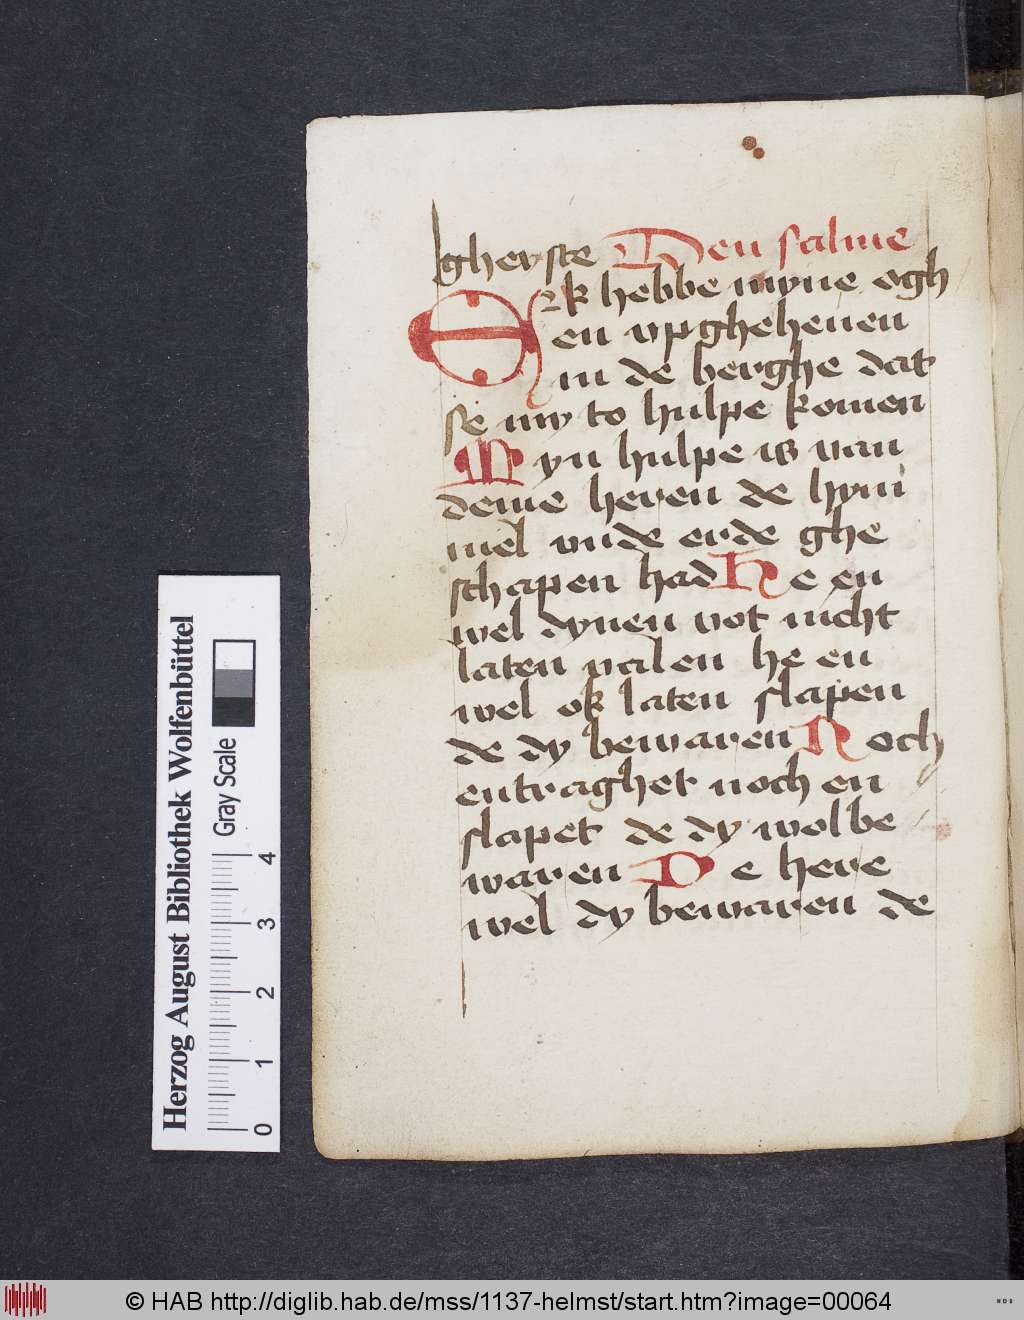 gherste Den salme
Ik hebbe myne ogh
en vpgheheuen
in de berghe dat
se my to hulpe komen
Myn hulpe is van
deme heren de hym
mel vnde erde ghe
schapen had He en
wel dynen vot nicht
laten valen he en
wel ok laten slapen
de dy bewaren Noch
entraghet noch en
slapet de dy wol be
waren De here
wel dy bewaren de
Herzog August Bibliothek Wolfenbüttel
Gray Scale
0 1 2 3 4
© HAB http://diglib.hab.de/mss/1137-helmst/start.htm?image=00064